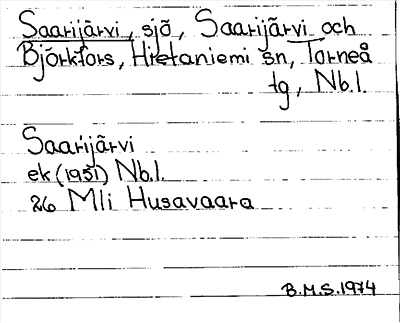 Saarijärvi, sjö, Saarijärvi och
Björkfors, Hietaniemi sn, Torneå
tg, Nb.l.
Saarijärvi
ek (1951) Nb.l.
26 Mli Husavaara
B.M.S. 1974